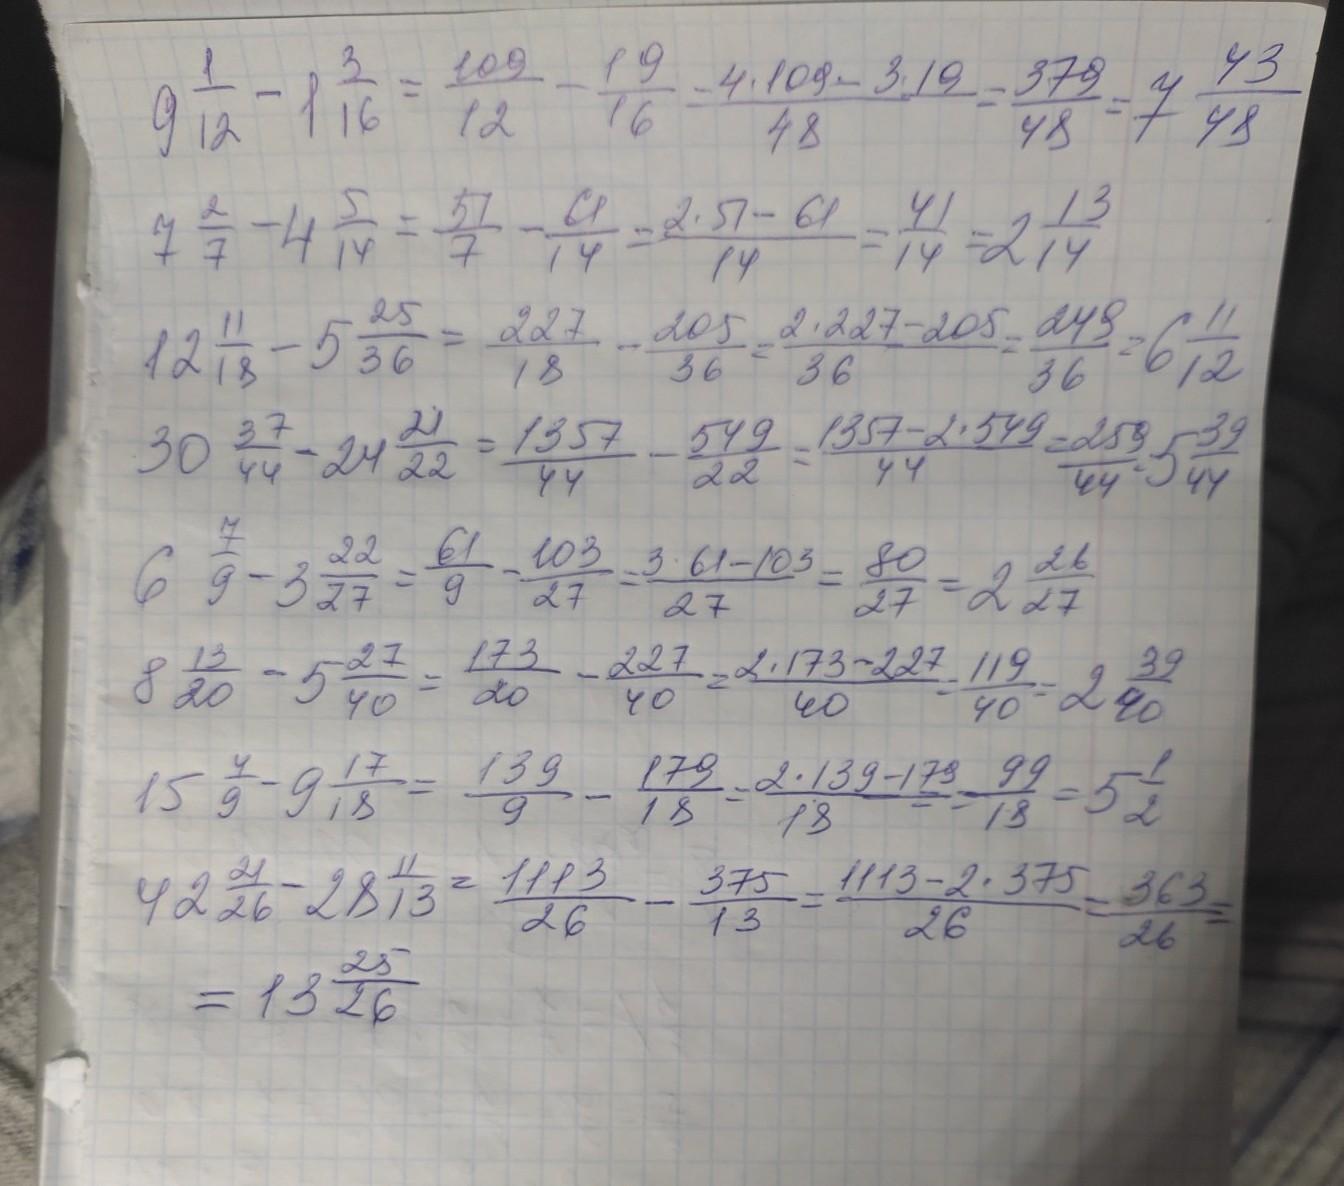 9 1/12 - 1 3/16 = 109/12 - 19/16 = (4·109 - 3·19)/48 = 379/48 = 7 43/48
7 2/7 - 4 5/14 = 51/7 - 61/14 = (2·51 - 61)/14 = 41/14 = 2 13/14
12 11/18 - 5 25/36 = 227/18 - 205/36 = (2·227 - 205)/36 = 249/36 = 6 11/12
30 37/44 - 24 21/22 = 1357/44 - 549/22 = (1357 - 2·549)/44 = 259/44 = 5 39/44
6 7/9 - 3 22/27 = 61/9 - 103/27 = (3·61 - 103)/27 = 80/27 = 2 26/27
8 13/20 - 5 27/40 = 173/20 - 227/40 = (2·173 - 227)/40 = 119/40 = 2 39/40
15 4/9 - 9 17/18 = 139/9 - 179/18 = (2·139 - 179)/18 = = 99/18 = 5 1/2
42 21/26 - 28 11/13 = 1113/26 - 375/13 = (1113 - 2·375)/26 = 363/26 =
= 13 25/26